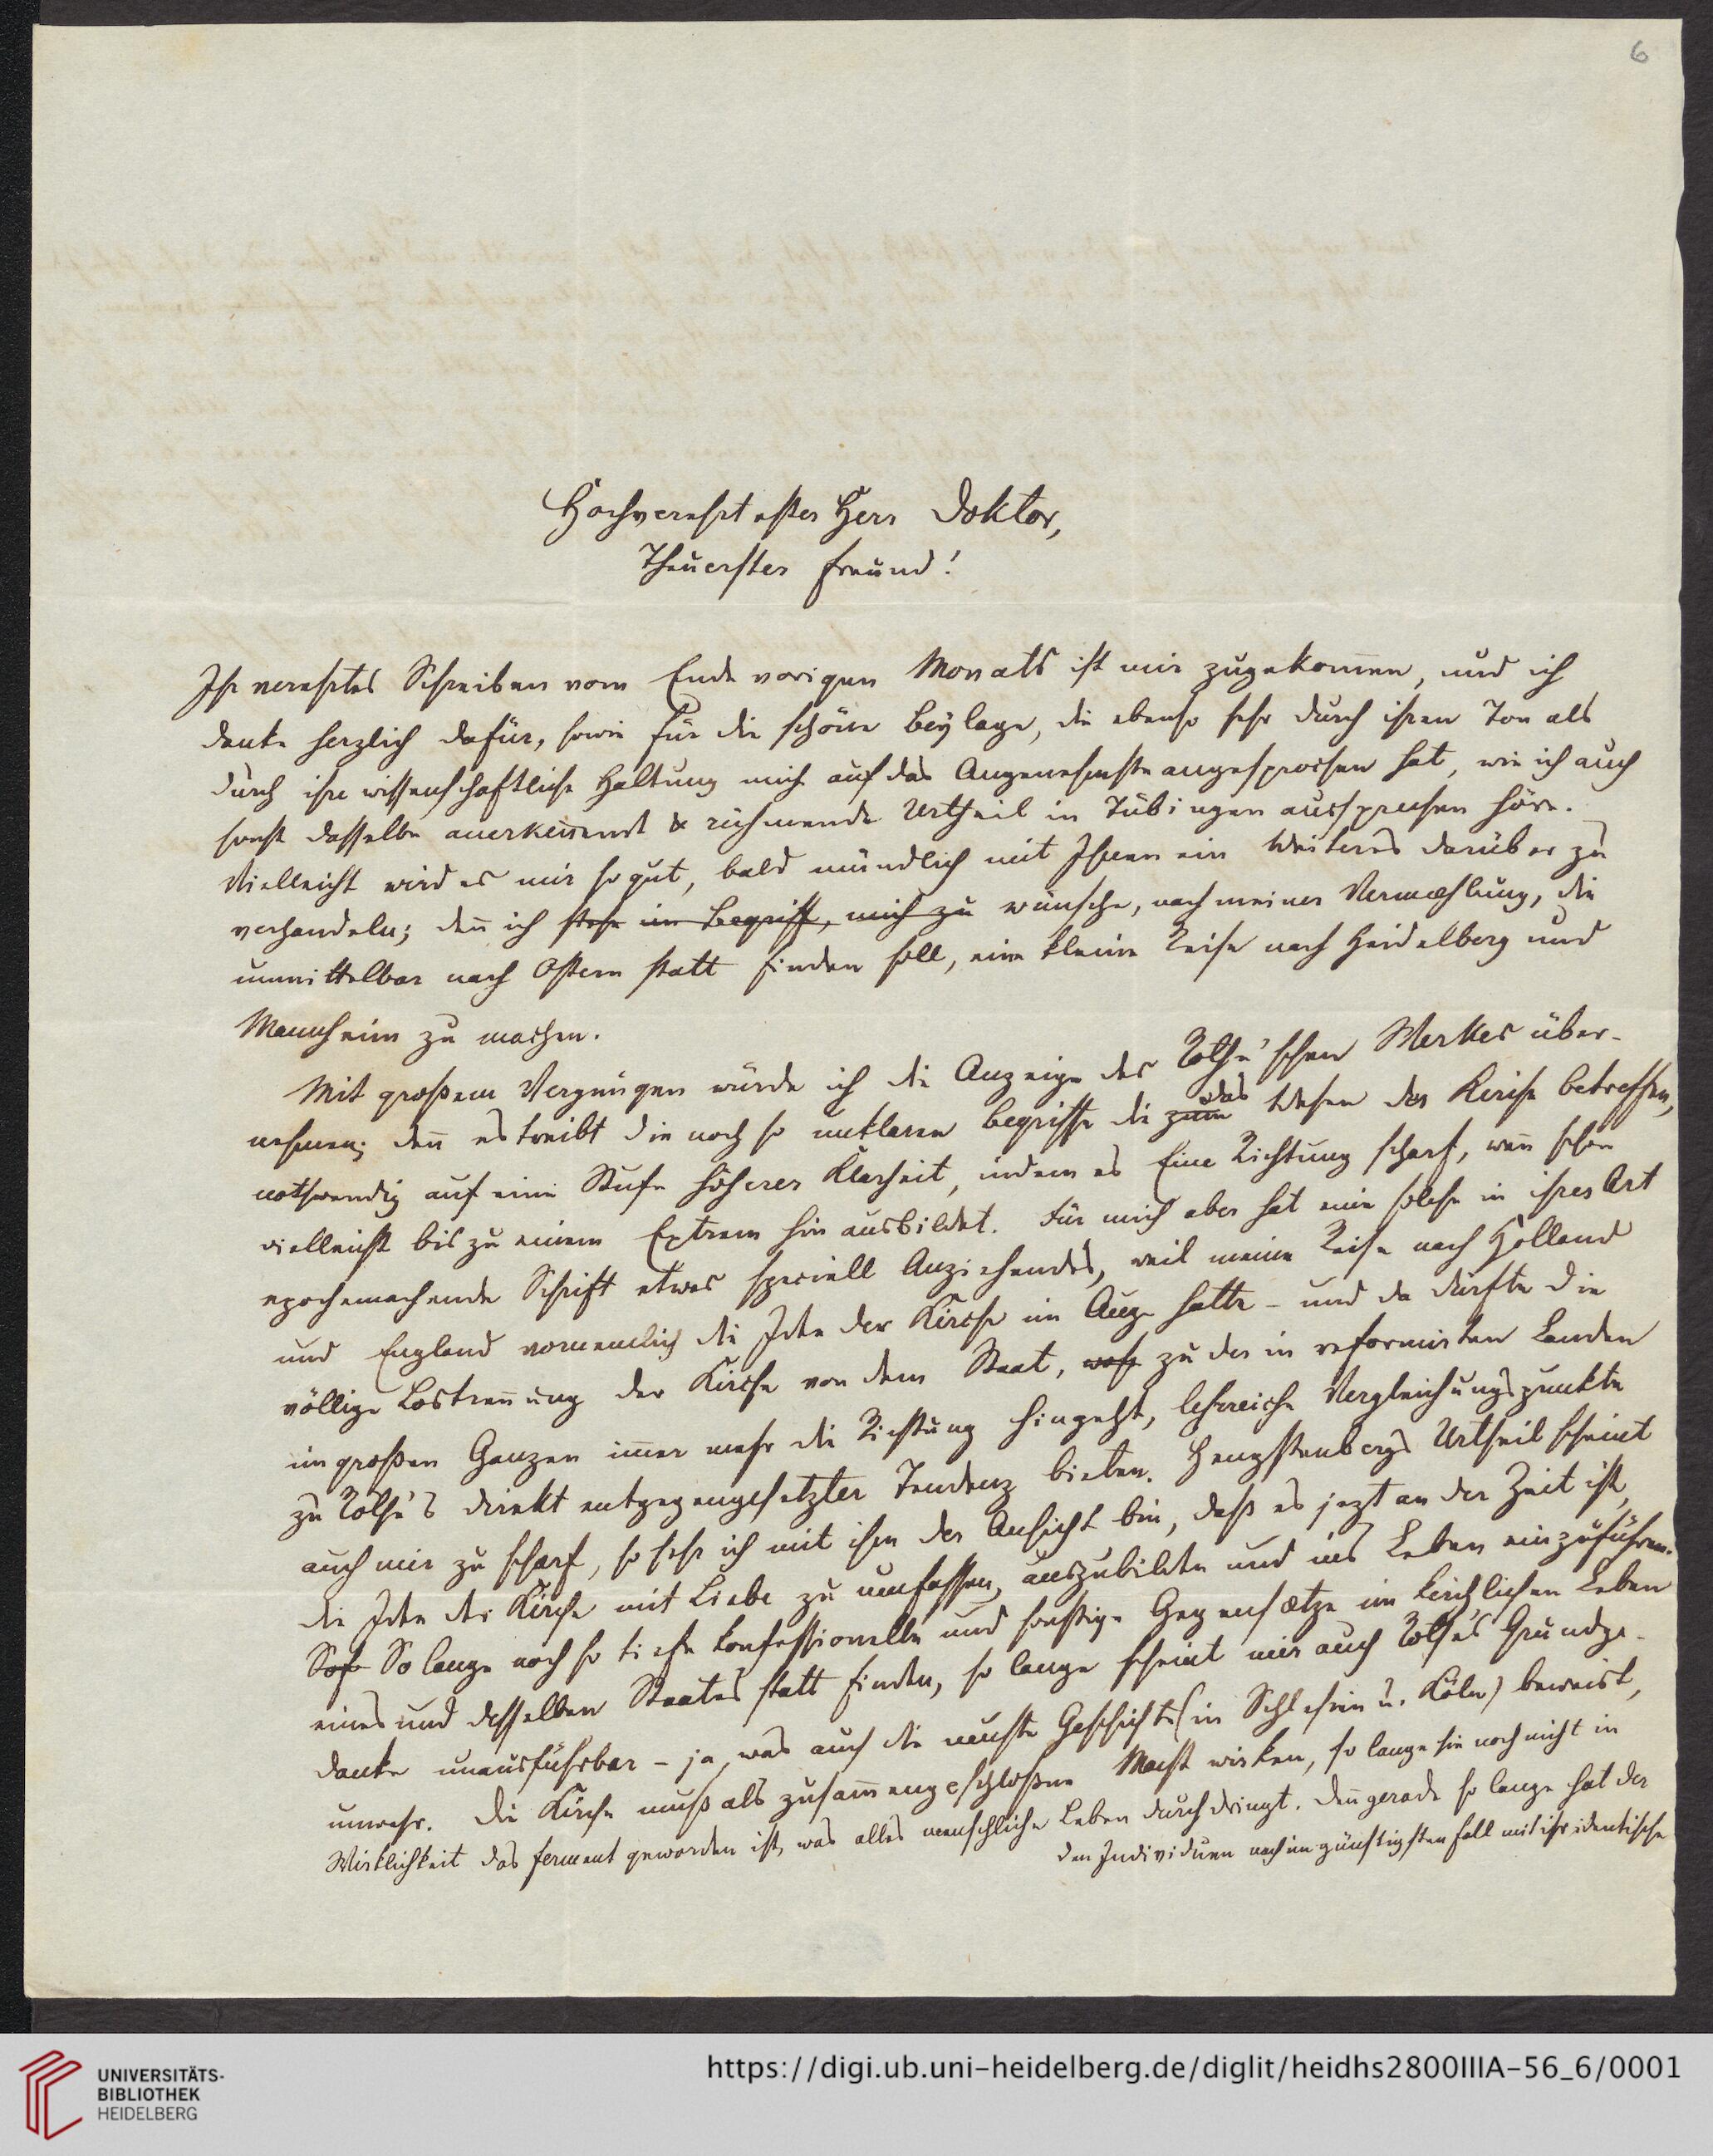 6
Hochverehrtester Herr Doktor,
Theuerster Freund!
Ihr verehrtes Schreiben vom Ende vorigen Monats ist mir zugekom̅en, und ich
danke herzlich dafür, sowie für die schöne Beylage, die ebenso sehr durch ihren Ton als
durch ihre wissenschaftliche Haltung mich auf das Angenehmste angesprochen hat, wie ich auch
sonst dasselbe anerken̅end & rühmende Urtheil in Tübingen aussprechen höre.
Vielleicht wird es mir so gut, bald mündlich mit Ihnen ein Weiteres darüber zu
verhandeln; den̅ ich stehe im Begriff, mich zu wünsche, nach meiner Vermæhlung, die
unmittelbar nach Ostern statt finden soll, eine kleine Reise nach Heidelberg und
Mannheim zu machen.
Mit großem Vergnügen würde ich die Anzeige des Rothe'schen Werkes über-
nehmen; den̅ es treibt die noch so unklaren Begriffe die zum das Wesen der Kirche betreffen,
nothwendig auf eine Stufe höherer Klarheit, indem es Eine Richtung scharf, wen̅ schon
vielleicht bis zu einem Extrem hin ausbildet. Für mich aber hat eine solche in ihrer Art
epochemachende Schrift etwas speciell Anziehendes, weil meine Reise nach Holland
und England vornemlich die Idee der Kirche im Auge hatte - und da dürfte die
völlige Lostren̅ung der Kirche von dem Staat, wohl zu der in reformirten Landen
im großen Ganzen im̅er mehr die Richtung hingeht, lehrreiche Vergleichungspunkte
zu Rothe's direkt entgegengesetzter Tendenz bieten. Hengstenbergs Urtheil scheint
auch mir zu scharf, so sehr ich mit ihm der Ansicht bin, daß es jezt an der Zeit ist,
die Idee der Kirche mit Liebe zu umfassen, auszubilden und ins Leben einzuführen.
So So lange noch so tiefe konfessionelle und sonstige Gegensætze im kirchlichen Leben
eines und desselben Staates statt finden, so lange scheint mir auch Rothe's Grundge-
danke unausführbar - ja, was auch die neuste Geschichte (in Schlesien u. Köln) beweist,
unwahr. Die Kirche muß als zusam̅engeschloßene Macht wirken, so lange sie noch nicht in
Wirklichkeit das Ferment geworden ist, was alles menschliche Leben durchdringt. Den̅ gerade so lange hat der
den Individuen noch im günstigsten Fall mit ihr identische
UNIVERSITÄTS-
BIBLIOTHEK
HEIDELBERG
https://digi.ub.uni-heidelberg.de/diglit/heidhs2800IIIA-56_6/0001